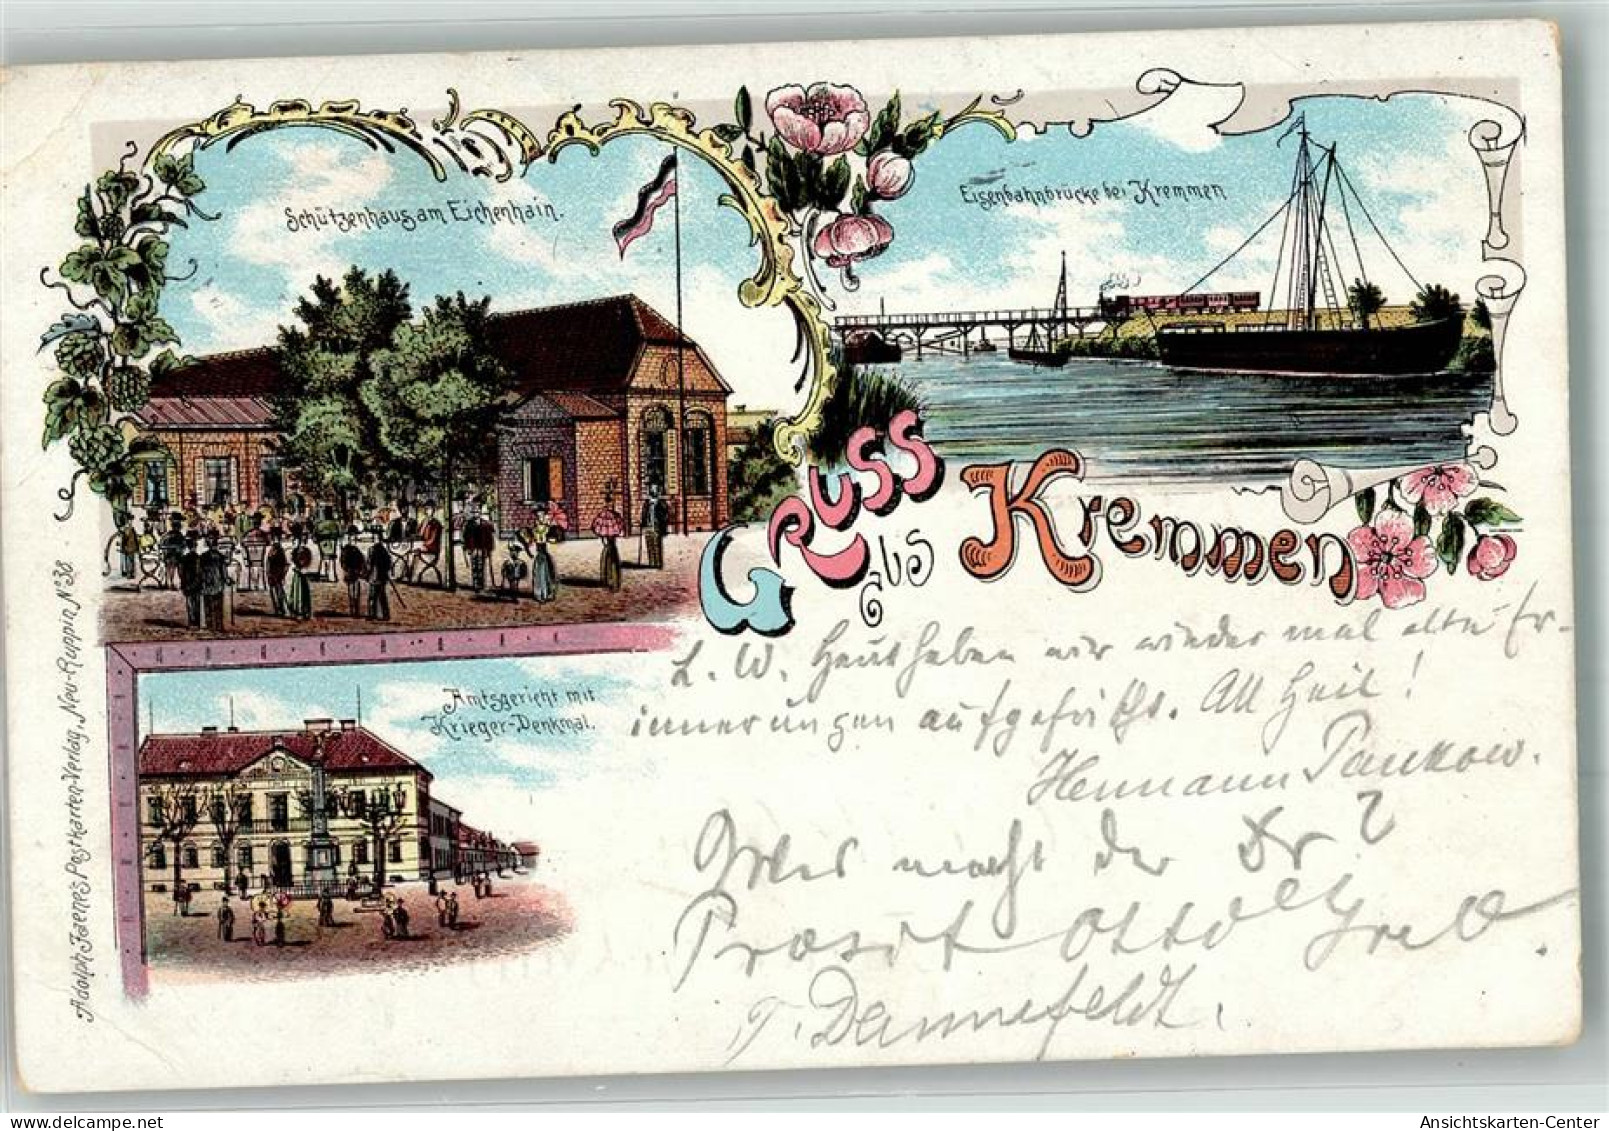 Schützenhaus am Eichenhain.
Eisenbahnbrücke bei Kremmen
Gruss
aus Kremmen
Amtsgericht mit
Krieger-Denkmal.
Adolph Jaene's Postkarten-Verlag, Neu-Ruppin Nº 30
L. W. Heut haben wir wieder mal alte Er-
innerungen aufgefrischt. All Heil!
Hermann Pankow.
Was macht der Dr ?
Prosit Otto
T. Dannefeldt.
delcampe.net
Ansichtskarten-Center